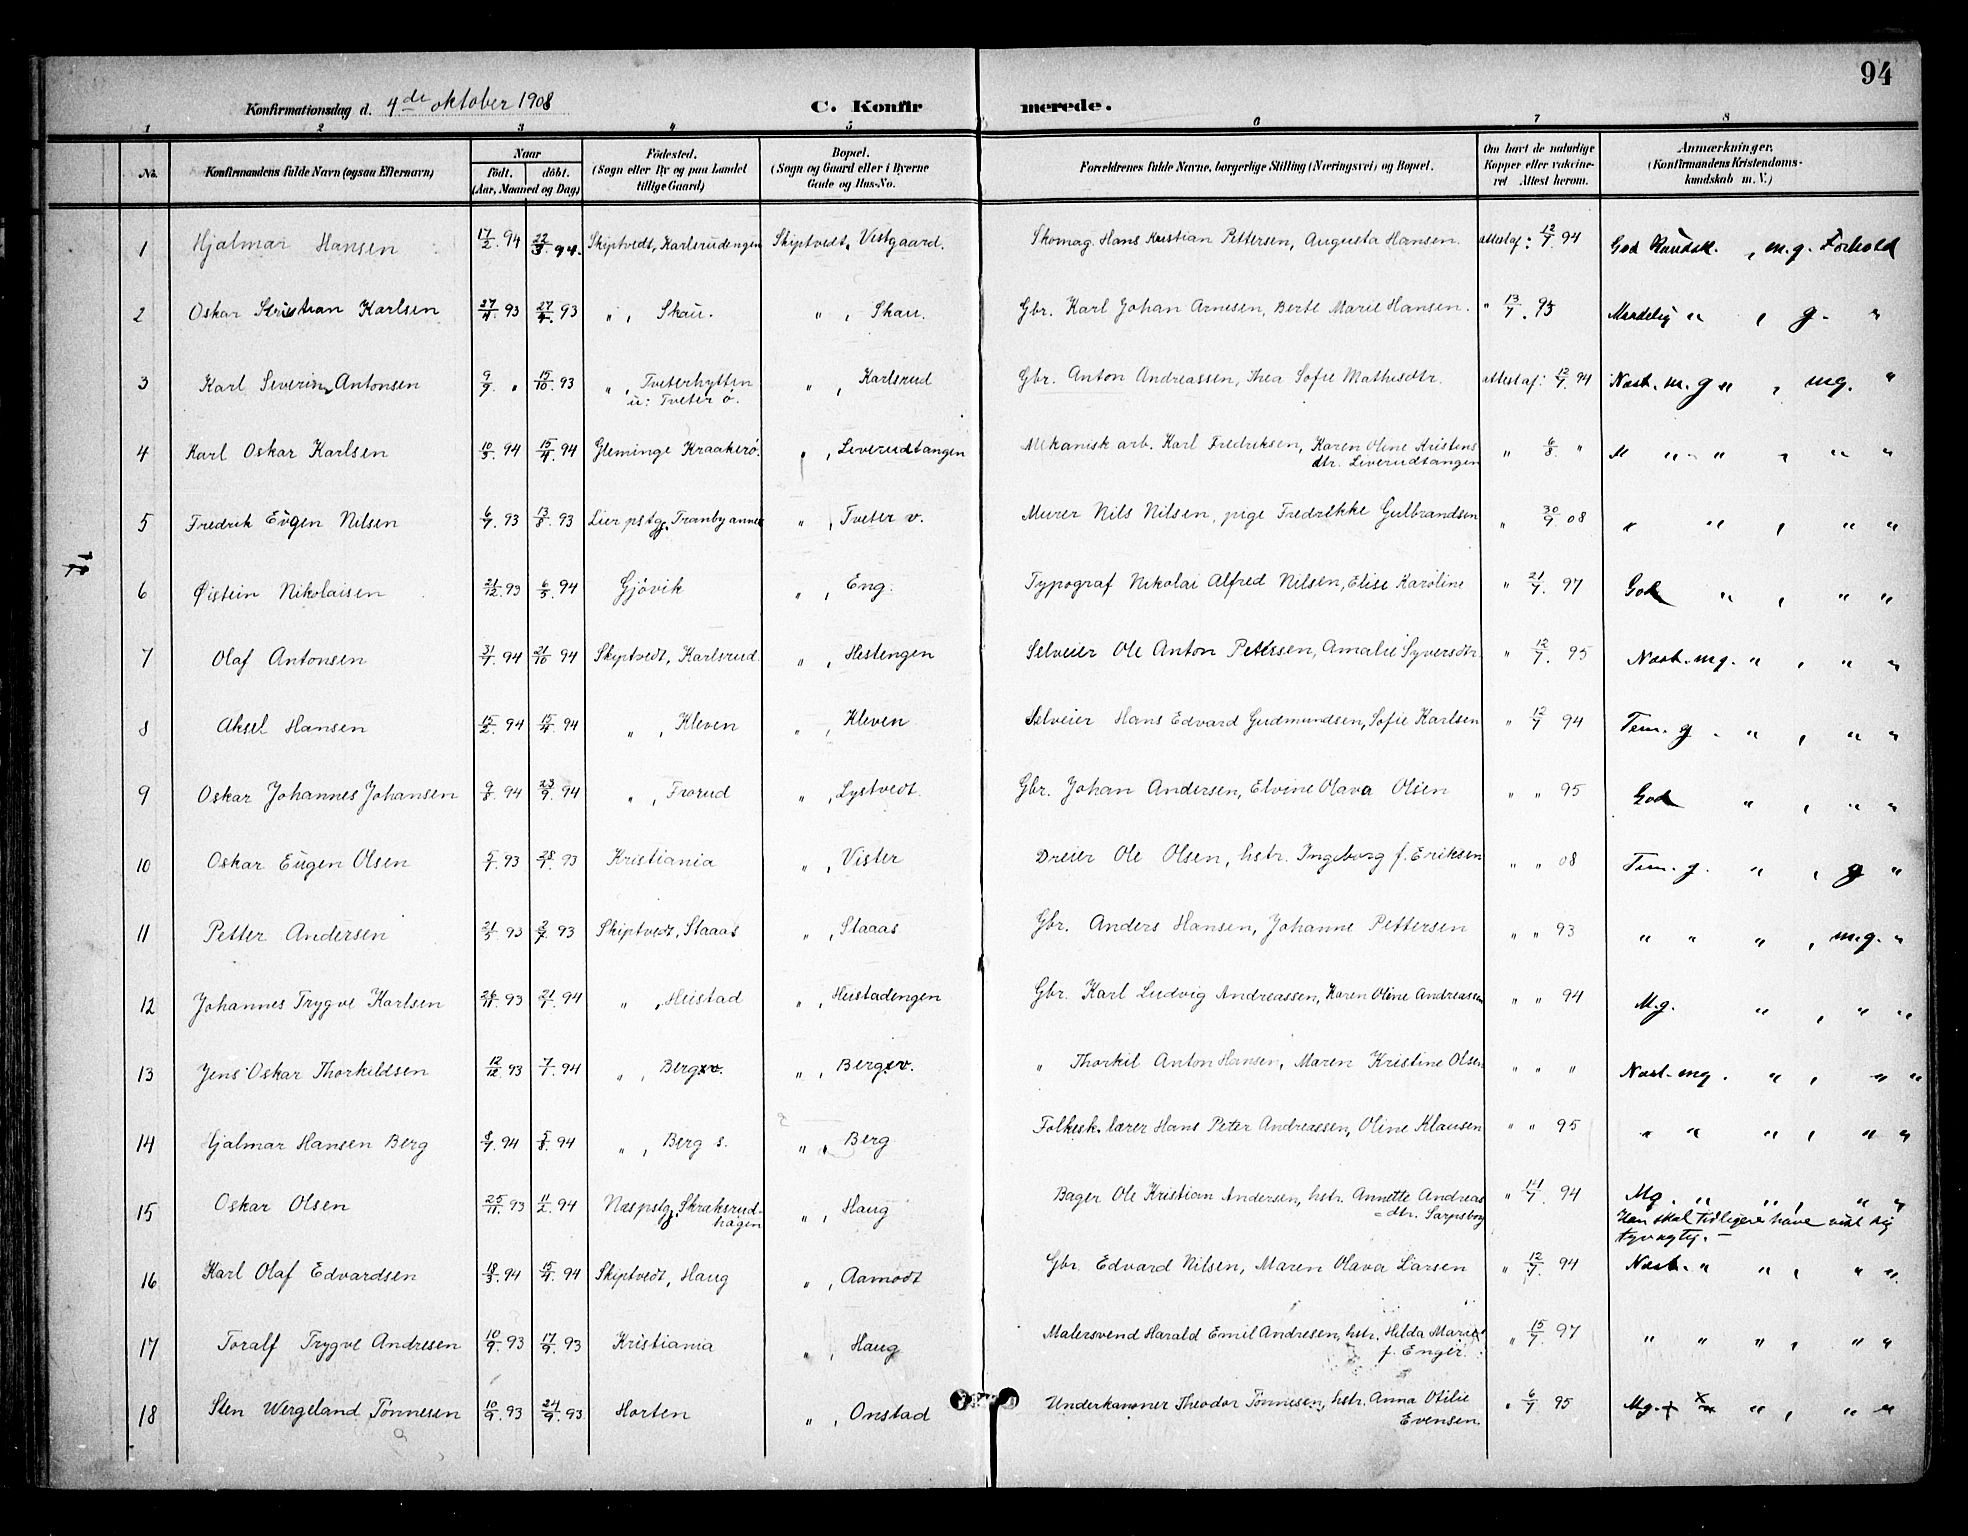 94
Konfirmationsdag d. 4de oktober 1908 C. Konfir merede.
1 2 3 4 5 6 7 8
No. Konfirmandens fulde Navn (ogsaa Efternavn) Naar födt. döbt. (Aar, Maaned og Dag) Födested. (Sogn eller By og paa Landet tillige Gaard) Bopæl. (Sogn og Gaard eller i Byerne Gade og Hus-No. Forældrenes fulde Navne, borgerlige Stilling (Næringsvei) og Bopæl. Om havt de naturlige Kopper eller vaccineret Attest herom. Anmærkninger. (Konfirmandens Kristendomskundskab m. V.)
1 Hjalmar Hansen 17/2 94 22/3 94. Skiptvedt, Karlsrudengen Skiptvedt, Vistgaard. Skomag. Hans Kristian Pettersen, Augusta Hansen. attest af: 12/7 94 God Kundsk. , m.g. Forhold
2 Oskar Kristian Karlsen 27/4 93 27/4 93 " , Skau. " , Skau. Gbr. Karl Johan Arnesen, Berte Marie Hansen. " 13/7 . 95 Maadelig " , g. "
3 Karl Severin Antonsen 9/9 " 15/10 93 " , Tveterhytten
u: Tveter ö. " , Karlsrud Gbr. Anton Andreassen, Thea Sofie Mathisdtr. attest af: 12/7 94 Næst. m. g " , mg. "
4 Karl Oskar Karlsen 10/3 94 15/4 94 Gleminge Kraakerö. " , Leverudtangen Mekanisk arb. Karl Fredriksen, Karen Oline Kristens
dtr. Leverudtangen " 6/8 " M " " , " "
5 Fredrik Eugen Nilsen 6/7 93 13/8 93 Lier pstgj. Tranby annex " , Tveter v. Murer Nils Nilsen, pige Fredrikke Gulbrandsen " 30/9 08 " " , " "
6 Øistein Nikolaisen 21/12 93 6/5 94 Gjövik " , Eng. Typograf Nikolai Alfred Nilsen, Elise Karoline " 21/7 97 God " , " "
7 Olaf Antonsen 31/7 94 21/10 94 Skiptvedt, Karlsrud. " , Hestengen Selveier Ole Anton Pettersen, Amalie Syversdtr. " 12/7 95 Næst. mg. " , " "
8 Aksel Hansen 15/2 94 15/4 94 " , Kleven " , Kleven Selveier Hans Edvard Gudmundsen, Sofie Karlsen " 12/7 94 Tem. g . " , " "
9 Oskar Johannes Johansen 9/8 94 23/9 94 " , Frorud " , Lystvedt. Gbr. Johan Andersen, Elvine Olava Olsen " " 95 God " , " "
10 Oskar Eugen Olsen 5/7 93 28/7 93 Kristiania " , Vister Dreier Ole Olsen, hstr. Ingeborg f. Eriksen " " 08 Tem. g. " , g "
11 Petter Andersen 21/5 93 2/7 93 Skiptvedt, Staaas " , Staaas Gbr. Anders Hansen, Johanne Pettersen " " 93 " " " , m.g. "
12 Johannes Trygve Karlsen 26/11 93 21/7 94 " , Heistad " , Heistadengen Gbr. Karl Ludvig Andreassen, Karen Oline Andreassen " " 94 M.g. " , " "
13 Jens Oskar Thorkildsen 12/12 93 7/7 94 " , Berg v. " , Berg v. " Thorkil Anton Hansen, Maren Kristine Olsen " " " Næst. mg . " , " "
14 Hjalmar Hansen Berg 8/7 94 5/8 94 " , Berg s. " , Berg Folkesk. lærer Hans Peter Andreassen, Oline Klausen " " 95 " " " , " "
15 Oskar Olsen 25/11 93 11/2 94 Næs pstgj. Skraksrud-
hagen " , Haug Bager Ole Kristian Andersen, hstr. Annette Andreas
= dtr. Sarpsborg " 14/7 94 Mg. " " , " "
Han skal tidligere have vist sig
tyvagtig. —
16 Karl Olaf Edvardsen 18/3 94 15/4 94 Skiptvedt, Haug " , Aamodt Gbr. Edvard Nilsen, Maren Olava Larsen " 12/7 94 Næst. " " , " "
17 Toralf Trygve Andresen 10/9 93 17/9 93 Kristiania " , Haug Malersvend Harald Emil Andresen, hstr. Hilda Marie
f. Enger. " 15/7 97 " " " , " "
18 Sten Wergeland Tønnesen 10/9 93 24/9 93 Horten " , Onstad Underkanoner Theodor Tønnesen, hstr. Anna Otilie
Evensen. " 6/7 95 Mg. + x " , " "